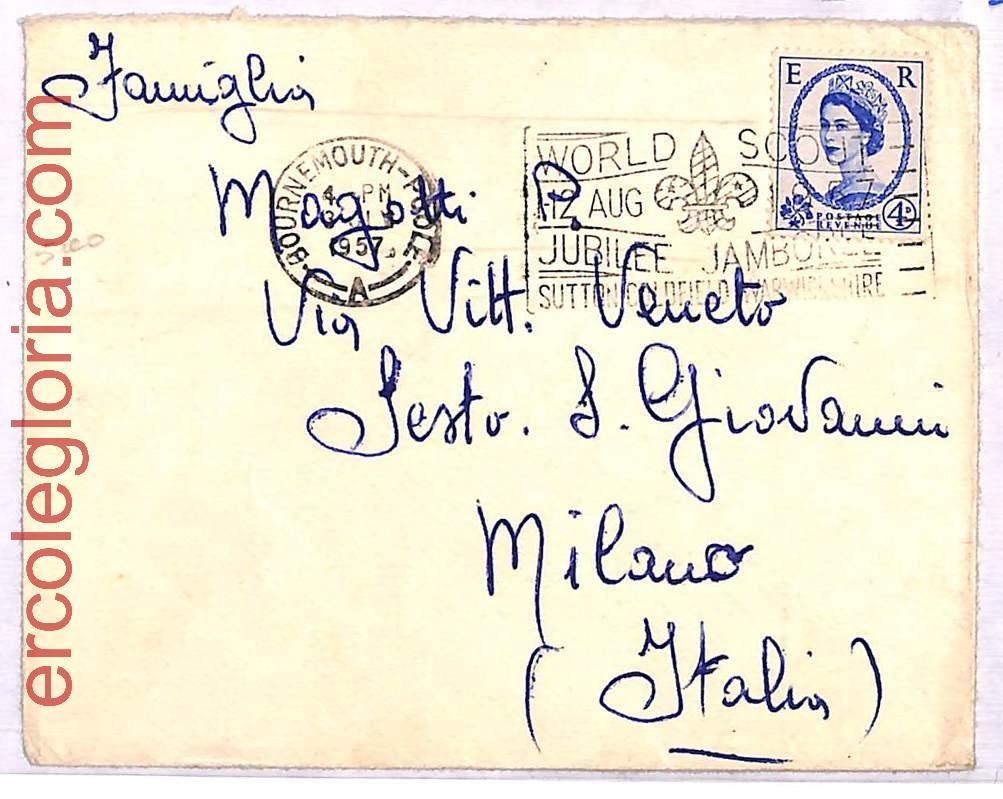 Famiglia
Magotti P.
Via Vitt. Veneto
Sesto. S. Giovanni
Milano
(Italia)
BOURNEMOUTH-POOLE
4 - PM
1957
A
WORLD SCOUT
1-12 AUG 1957
JUBILEE JAMBOREE
SUTTON COLDFIELD WARWICKSHIRE
E R
POSTAGE
REVENUE
4D
ercolegloria.com